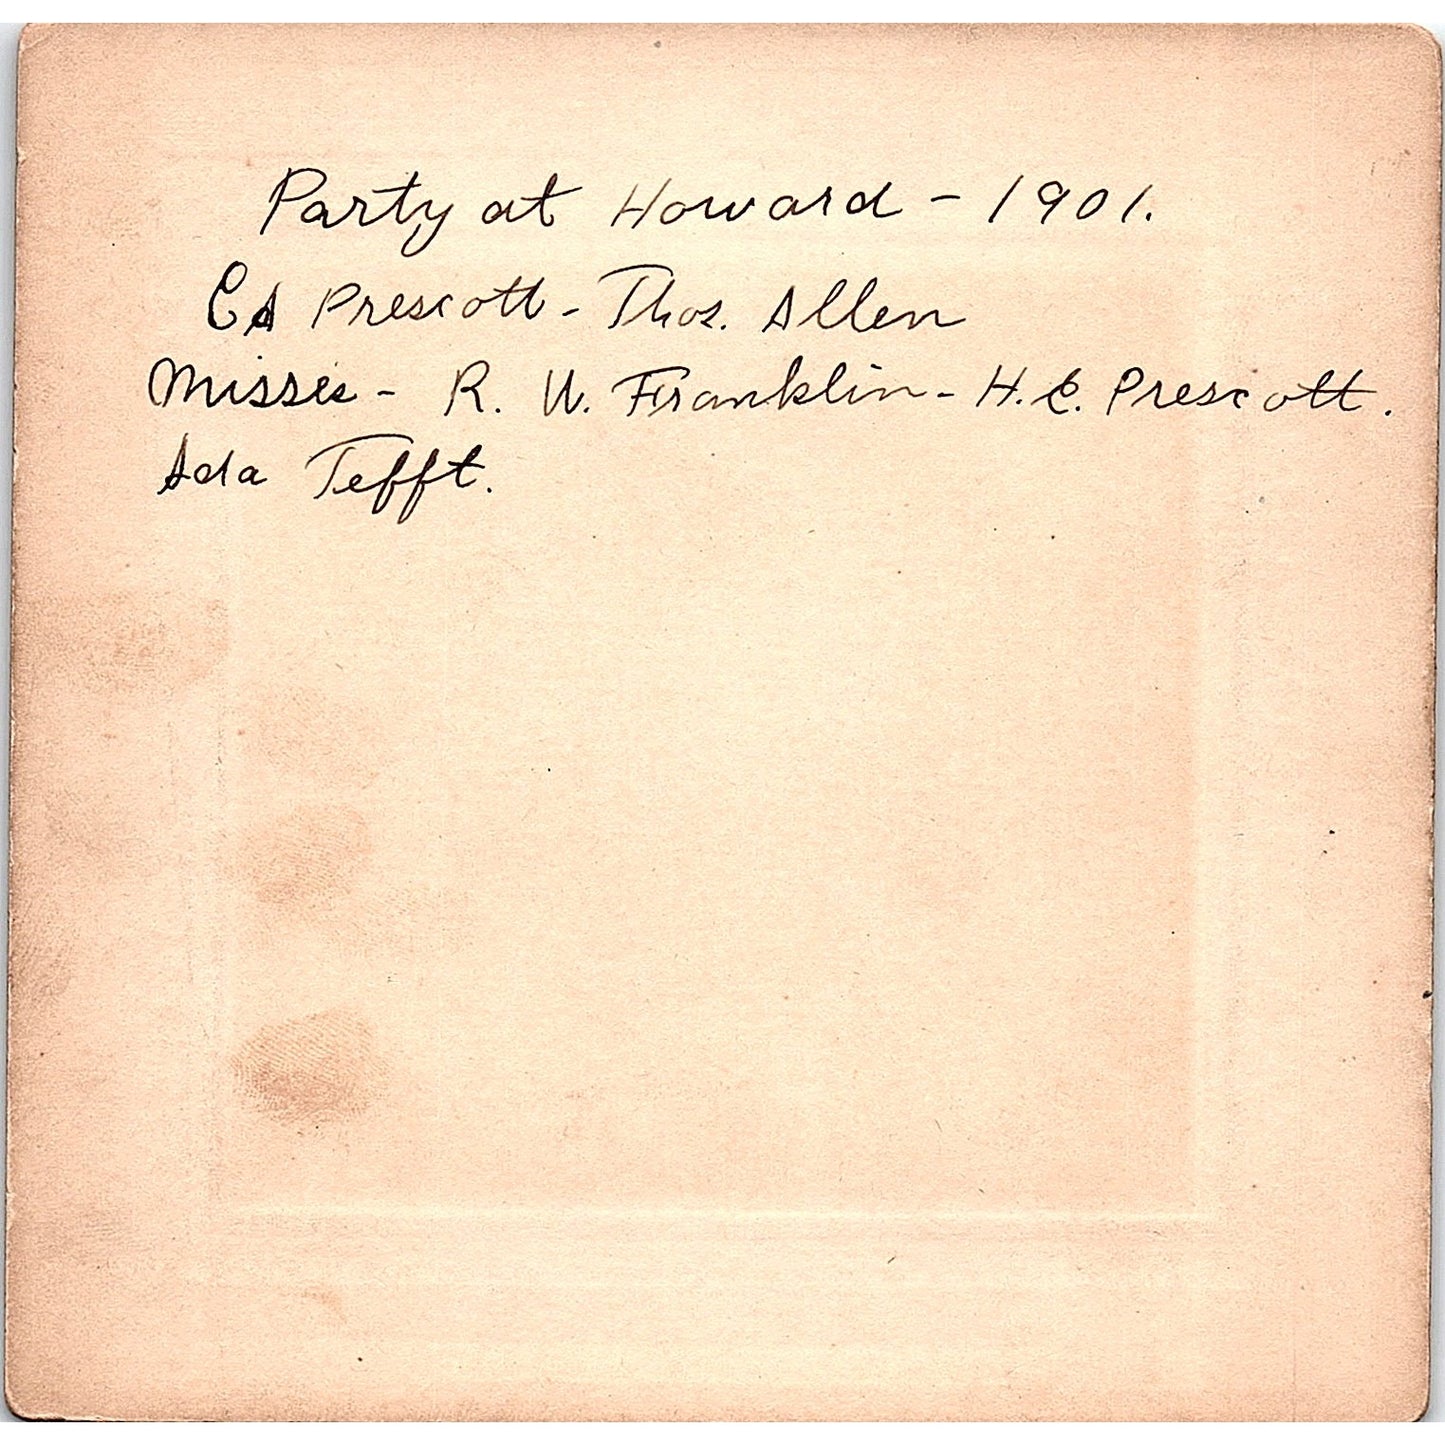 Party at Howard - 1901.
Ed Prescott - Thos. Allen
Misses - R. W. Franklin - H. E. Prescott.
Ada Tefft.